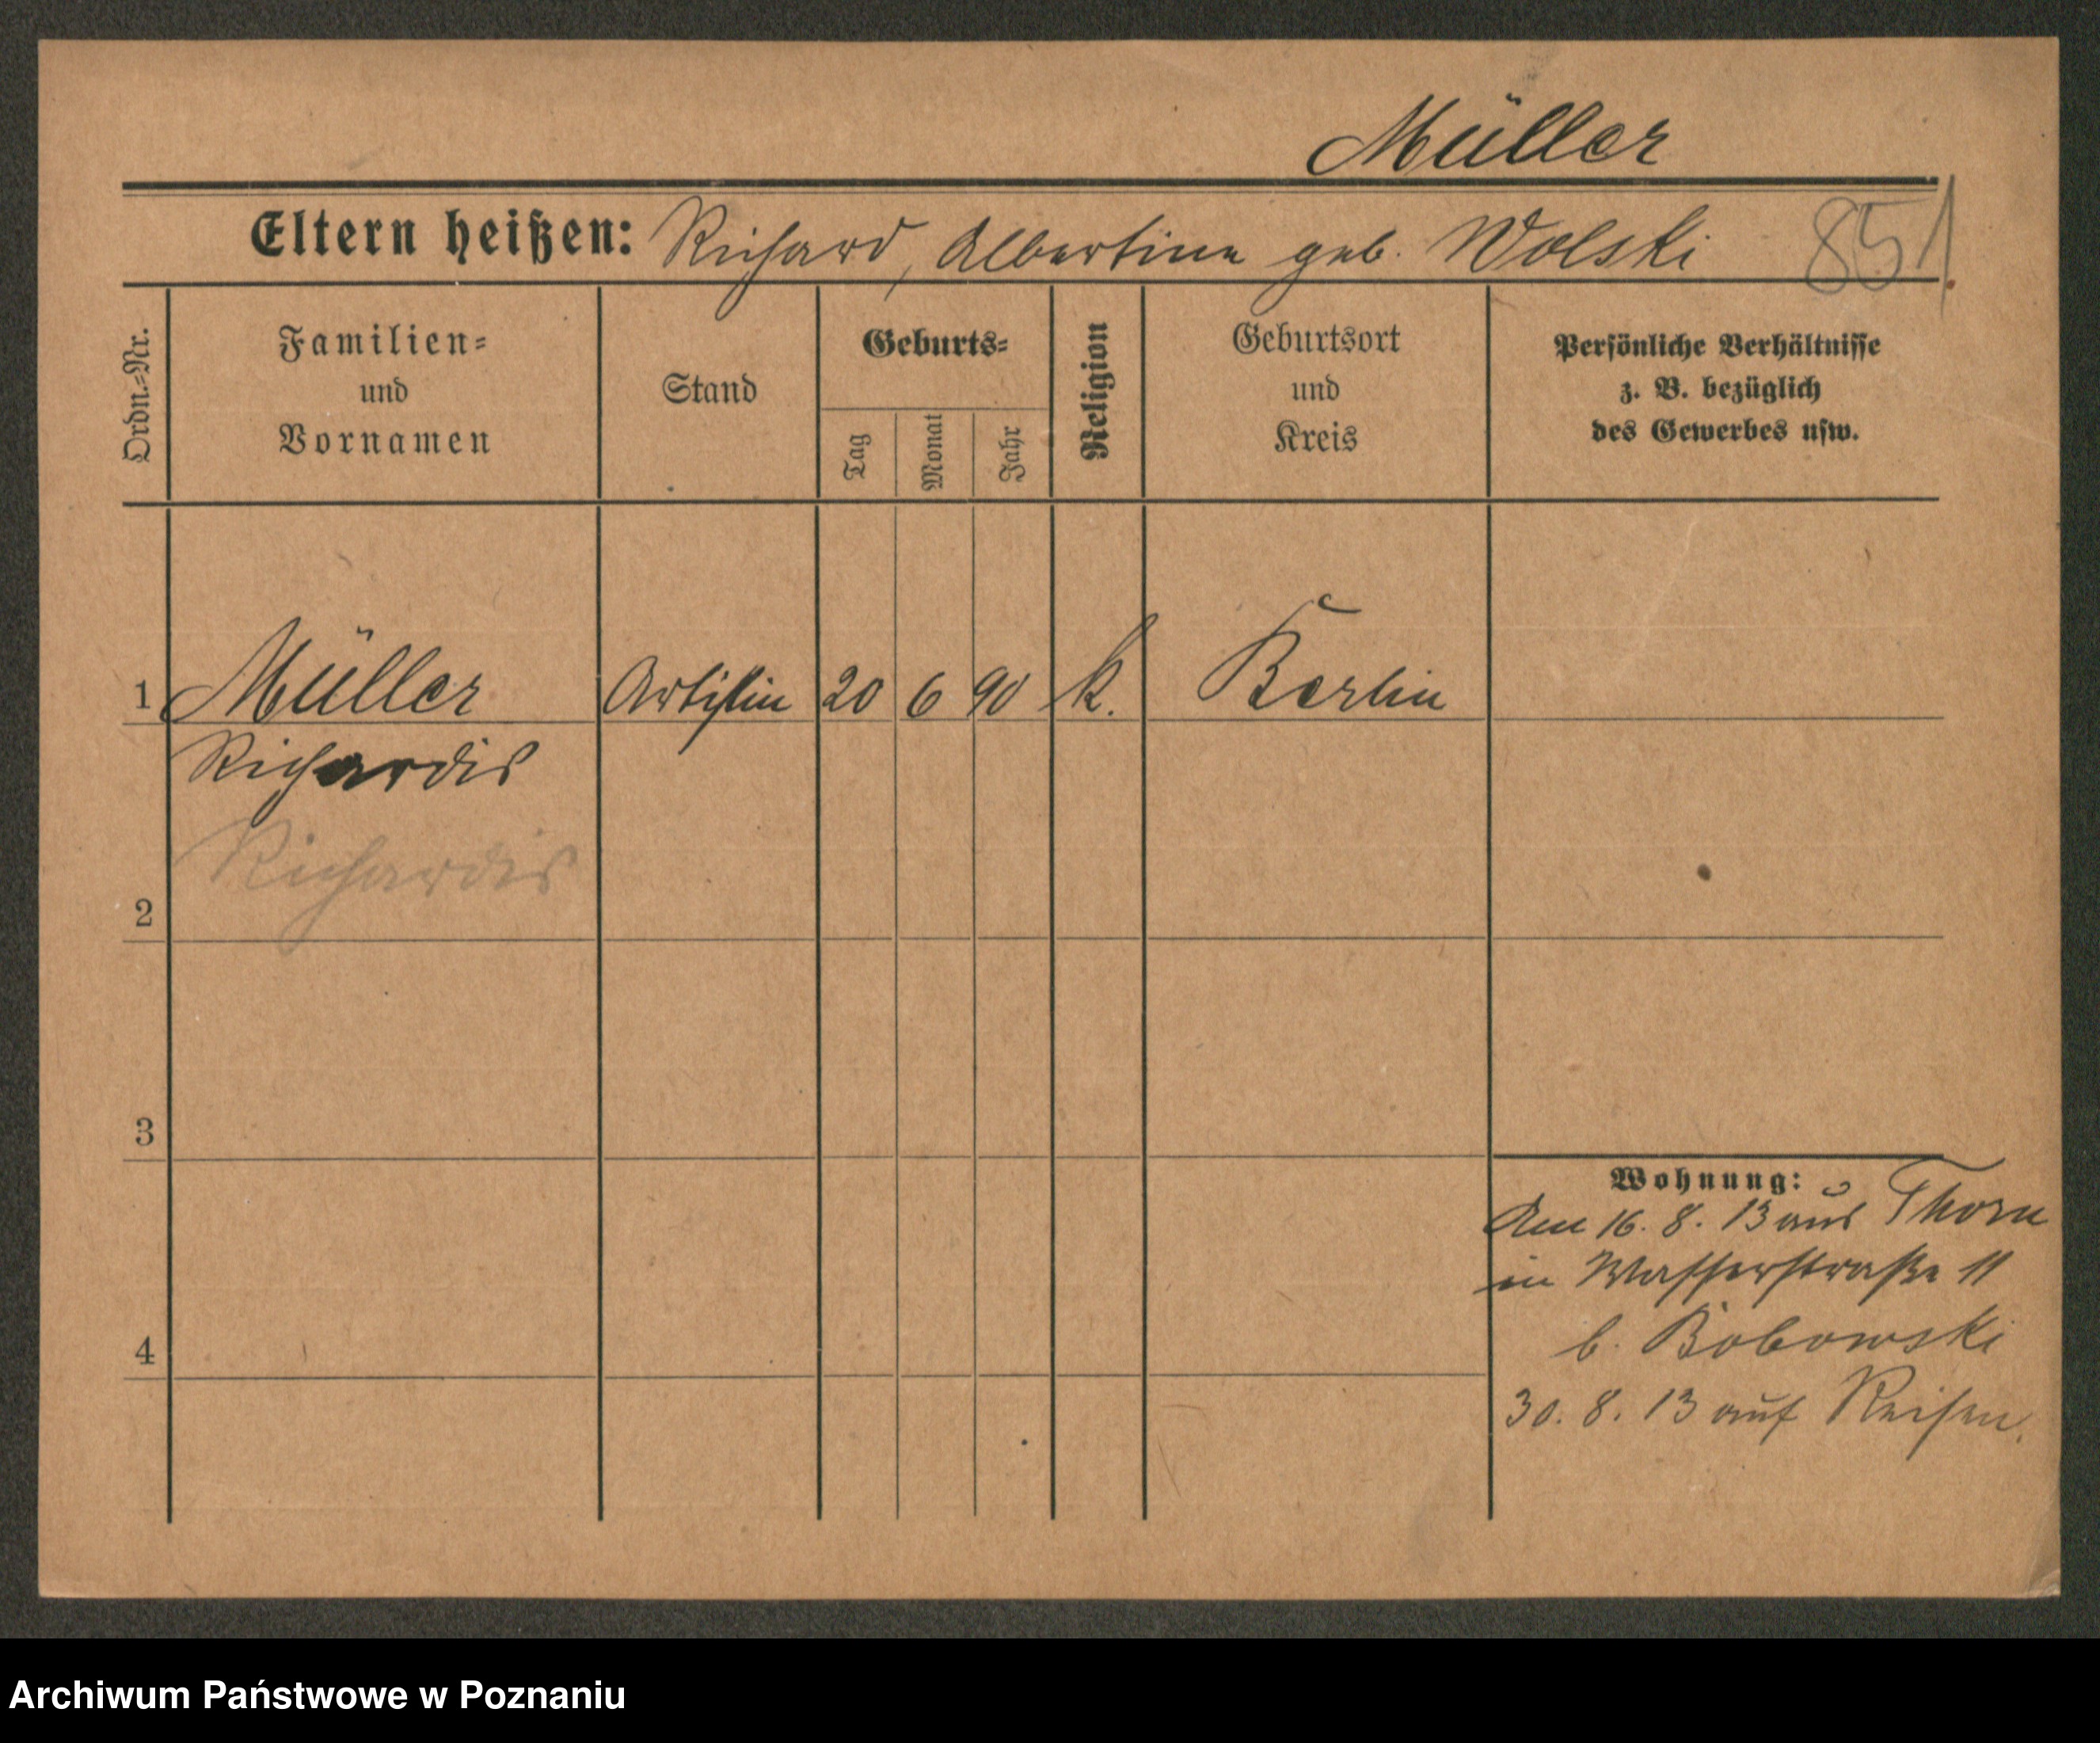 Müller
Eltern heißen: Richard, Albertine geb. Wolski
851
Ordn.=Nr.
Familien=
und
Vornamen
Stand
Geburts=
Tag
Monat
Jahr
Religion
Geburtsort
und
Kreis
Persönliche Verhältnisse
z. B. bezüglich
des Gewerbes usw.
1 Müller Artistin 20 6 90 k. Berlin
Richardis
Richardis
2
3
4
Wohnung:
Am 16. 8. 13 aus Thorn
in Wasserstraße 11
b. Bobowski
30. 8. 13 auf Reisen.
Archiwum Państwowe w Poznaniu